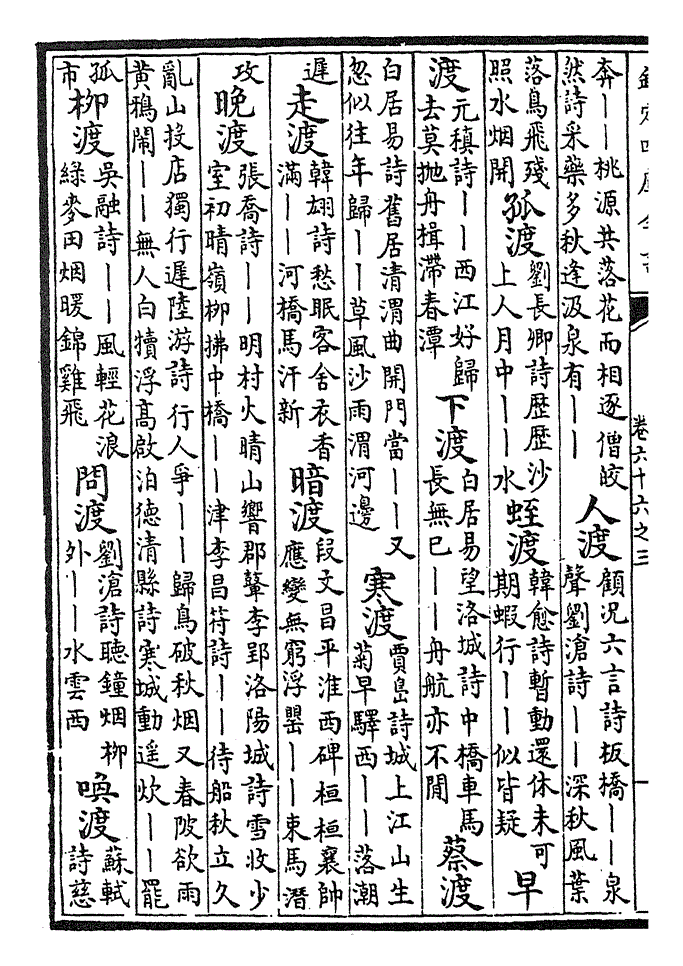 欽定四庫全書 卷六十六之三
奔——桃源共落花而相逐僧皎
然詩采藥多秋逢汲泉有——
人渡
顧況六言詩板橋——泉
聲劉滄詩——深秋風葉
落鳥飛殘
照水烟開
孤渡
劉長卿詩歷歷沙
上人月中——水
蛭渡
韓愈詩暫動還休未可
期蝦行——似皆疑
早
渡
元稹詩——西江好歸
去莫抛舟楫滯春潭
下渡
白居易望洛城詩中橋車馬
長無已——舟航亦不閒
蔡渡
白居易詩舊居清渭曲開門當——又
忽似往年歸——草風沙雨渭河邊
寒渡
賈島詩城上江山生
菊早驛西——落潮
遲
走渡
韓翃詩愁眠客舍衣香
滿——河橋馬汗新
暗渡
段文昌平淮西碑桓桓襄帥
應變無窮浮罌——東馬潛
攻
晚渡
張喬詩——明村火晴山響郡鼙李郢洛陽城詩雪收少
室初晴嶺柳拂中橋——津李昌符詩——待船秋立久
亂山投店獨行遲陸游詩行人爭——歸鳥破秋烟又春陂欲雨
黃鴉鬧——無人白犢浮高啟泊德清縣詩寒城動遙炊——罷
孤
市
柳渡
吳融詩——風輕花浪
綠麥田烟暖錦雞飛
問渡
劉滄詩聽鐘烟柳
外——水雲西
喚渡
蘇軾
詩慈